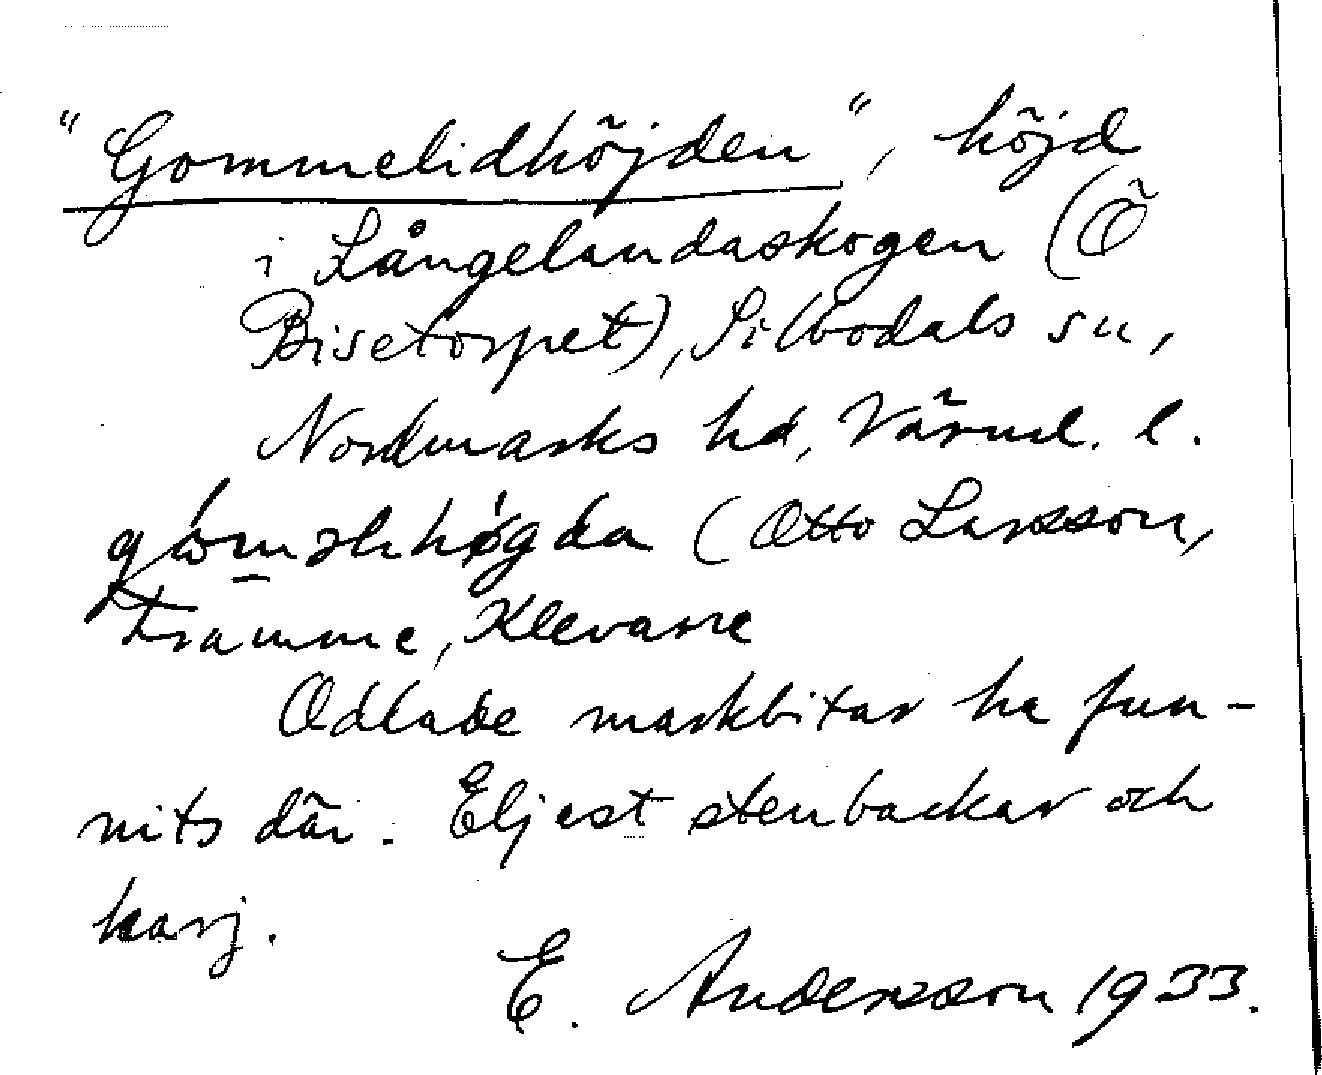 "Gommelidhöjden", höjd
i Långelandaskogen (Ö
Bisetorpet), Silbodals sn,
Nordmarks hd, Värml. l.
(Otto Larsson,
Framme, Klevane
Odlade markbitar ha fun-
nits där. Eljest stenbackar och
karj.
E. Andersson 1933.